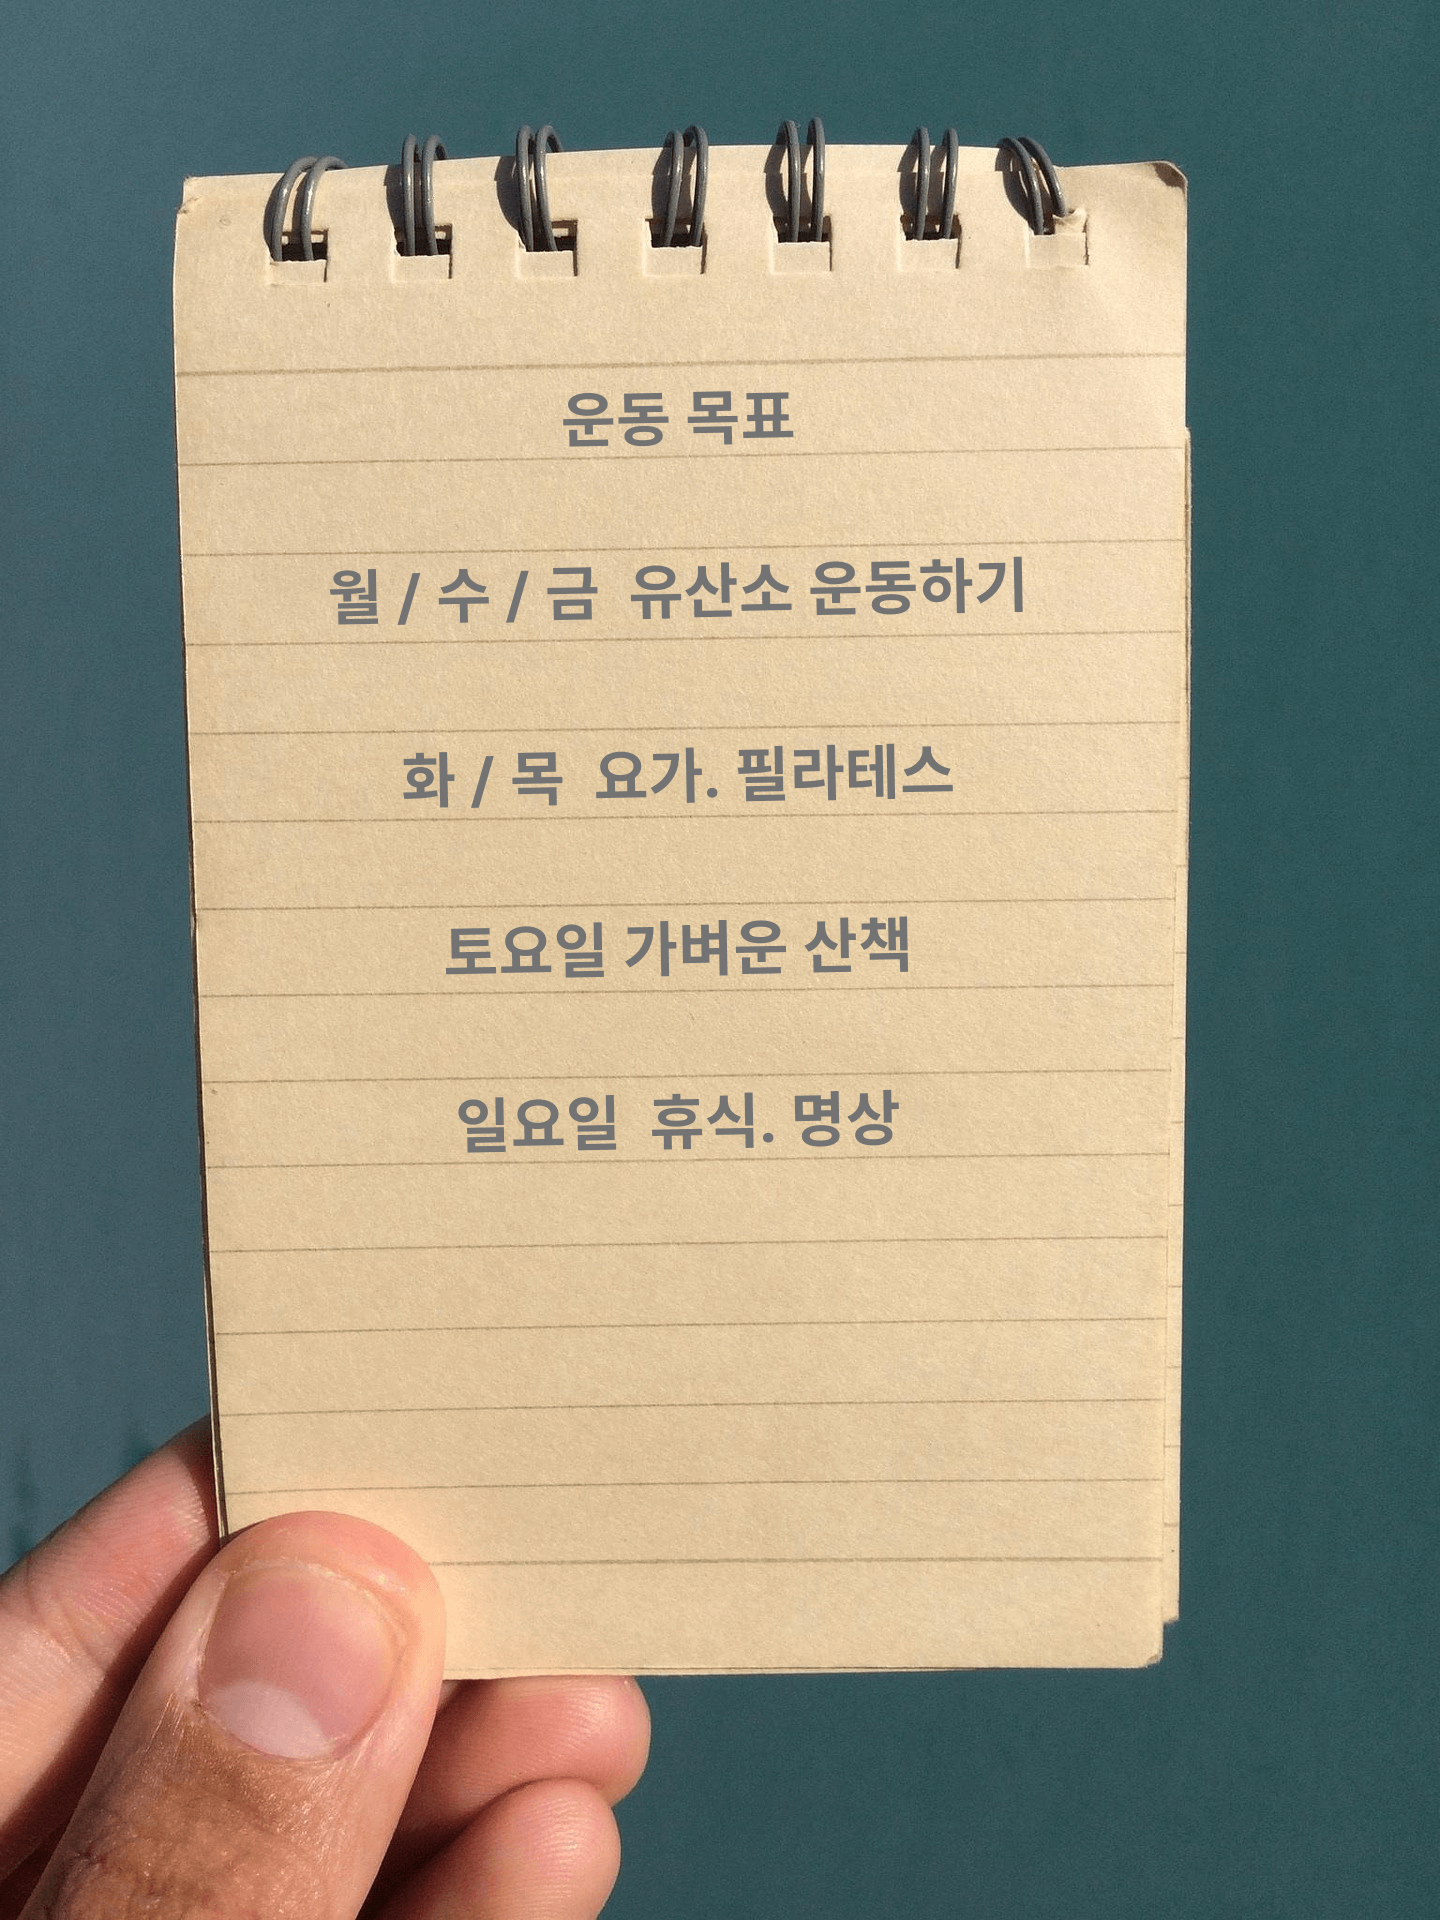 운동 목표
월 / 수 / 금 유산소 운동하기
화 / 목 요가. 필라테스
토요일 가벼운 산책
일요일 휴식. 명상